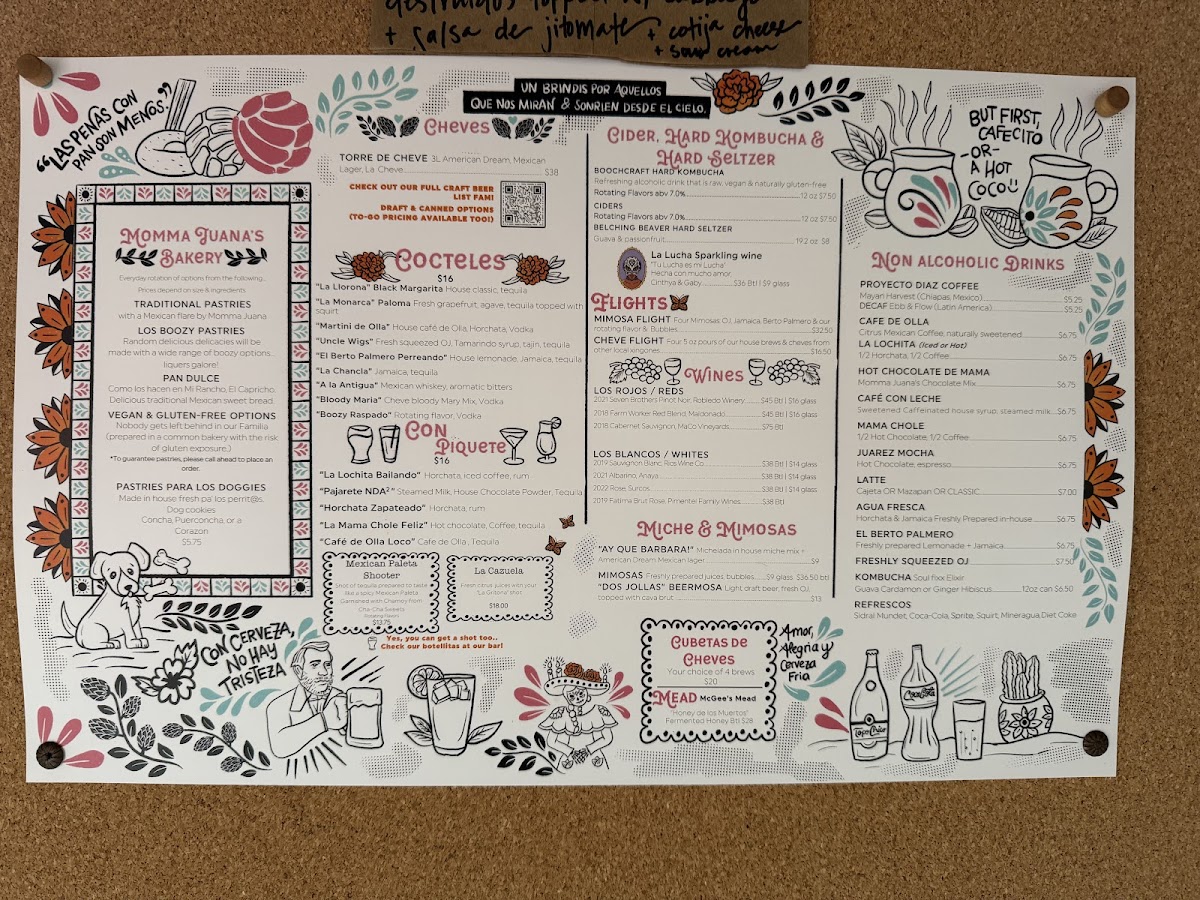 + salsa de jitomate + cotija cheese
+ sour cream
"LAS PEÑAS CON
PAN SON MENOS."
MOMMA JUANA'S
BAKERY
Everyday rotation of options from the following...
Prices depend on size & ingredients
TRADITIONAL PASTRIES
with a Mexican flare by Momma Juana
LOS BOOZY PASTRIES
Random delicious delicacies will be
made with a wide range of boozy options...
liquers galore!
PAN DULCE
Como los hacen en Mi Rancho, El Capricho.
Delicious traditional Mexican sweet bread.
VEGAN & GLUTEN-FREE OPTIONS
Nobody gets left behind in our Familia
(prepared in a common bakery with the risk
of gluten exposure.)
*To guarantee pastries, please call ahead to place an
order.
PASTRIES PARA LOS DOGGIES
Made in house fresh pa' los perrit@s.
Dog cookies
Concha, Puerconcha, or a
Corazon
$5.75
CON CERVEZA,
NO HAY
TRISTEZA
UN BRINDIS POR AQUELLOS
QUE NOS MIRAN & SONRIEN DESDE EL CIELO.
CHEVES
TORRE DE CHEVE 3L American Dream, Mexican
Lager, La Cheve $38
CHECK OUT OUR FULL CRAFT BEER
LIST FAM!
DRAFT & CANNED OPTIONS
(TO-GO PRICING AVAILABLE TOO!)
COCTELES
$16
"La Llorona" Black Margarita House classic, tequila
"La Monarca" Paloma Fresh grapefruit, agave, tequila topped with
squirt
"Martini de Olla" House café de Olla, Horchata, Vodka
"Uncle Wigs" Fresh squeezed OJ, Tamarindo syrup, tajin, tequila
"El Berto Palmero Perreando" House lemonade, Jamaica, tequila
"La Chancla" Jamaica, tequila
"A la Antigua" Mexican whiskey, aromatic bitters
"Bloody Maria" Cheve bloody Mary Mix, Vodka
"Boozy Raspado" Rotating flavor, Vodka
CON
PIQUETE
$16
"La Lochita Bailando" Horchata, iced coffee, rum
"Pajarete NDA²" Steamed Milk, House Chocolate Powder, Tequila
"Horchata Zapateado" Horchata, rum
"La Mama Chole Feliz" Hot chocolate, Coffee, tequila
"Café de Olla Loco" Cafe de Olla, Tequila
Mexican Paleta
Shooter
Shot of tequila prepared to taste
like a spicy Mexican Paleta
Garnished with Chamoy from
Cha Cha Sweets
Rotating Flavors
$13.75
La Cazuela
Fresh citrus juices with your
"La Gritona" shot
$18.00
Yes, you can get a shot too..
Check our botellitas at our bar!
CIDER, HARD KOMBUCHA &
HARD SELTZER
BOOCHCRAFT HARD KOMBUCHA
Refreshing alcoholic drink that is raw, vegan & naturally gluten-free
Rotating Flavors abv 7.0% 12 oz $7.50
CIDERS
Rotating Flavors abv 7.0% 12 oz $7.50
BELCHING BEAVER HARD SELTZER
Guava & passionfruit 19.2 oz $8
La Lucha Sparkling wine
"Tu Lucha es mi Lucha"
Hecha con mucho amor,
Cinthya & Gaby $36 Btl | $9 glass
FLIGHTS
MIMOSA FLIGHT Four Mimosas: OJ, Jamaica, Berto Palmero & our
rotating flavor & Bubbles $32.50
CHEVE FLIGHT Four 5 oz pours of our house brews & cheves from
other local xingones $16.50
WINES
LOS ROJOS / REDS
2021 Seven Brothers Pinot Noir, Robledo Winery $45 Btl | $16 glass
2018 Farm Worker Red Blend, Maldonado $45 Btl | $16 glass
2018 Cabernet Sauvignon, MaCo Vineyards $75 Btl
LOS BLANCOS / WHITES
2019 Sauvignon Blanc, Rios Wine Co. $38 Btl | $14 glass
2021 Albarino, Anaya $38 Btl | $14 glass
2022 Rose, Surcos $38 Btl | $14 glass
2019 Fatima Brut Rose, Pimentel Family Wines $38 Btl
MICHE & MIMOSAS
"AY QUE BARBARA!" Michelada in house miche mix +
American Dream Mexican lager $9
MIMOSAS Freshly prepared juices, bubbles $9 glass $36.50 btl
"DOS JOLLAS" BEERMOSA Light craft beer, fresh OJ,
topped with cava brut $13
CUBETAS DE
CHEVES
Your choice of 4 brews
$20
MEAD McGee's Mead
"Honey de los Muertos"
Fermented Honey Btl $28
Amor,
Alegria y
Cerveza
Fria
BUT FIRST,
CAFECITO
-OR-
A HOT
COCO!!
NON ALCOHOLIC DRINKS
PROYECTO DIAZ COFFEE
Mayan Harvest (Chiapas, Mexico) $5.25
DECAF Ebb & Flow (Latin America) $5.25
CAFE DE OLLA
Citrus Mexican Coffee, naturally sweetened $6.75
LA LOCHITA (Iced or Hot)
1/2 Horchata, 1/2 Coffee $6.75
HOT CHOCOLATE DE MAMA
Momma Juana's Chocolate Mix $6.75
CAFÉ CON LECHE
Sweetened Caffeinated house syrup, steamed milk $6.75
MAMA CHOLE
1/2 Hot Chocolate, 1/2 Coffee $6.75
JUAREZ MOCHA
Hot Chocolate, espresso $6.75
LATTE
Cajeta OR Mazapan OR CLASSIC $7.00
AGUA FRESCA
Horchata & Jamaica Freshly Prepared in-house $6.75
EL BERTO PALMERO
Freshly prepared Lemonade + Jamaica $6.75
FRESHLY SQUEEZED OJ $7.50
KOMBUCHA Soul fixx Elixir
Guava Cardamon or Ginger Hibiscus 12oz can $6.50
REFRESCOS
Sidral Mundet, Coca-Cola, Sprite, Squirt, Mineragua, Diet Coke
Topo Chico
Coca-Cola